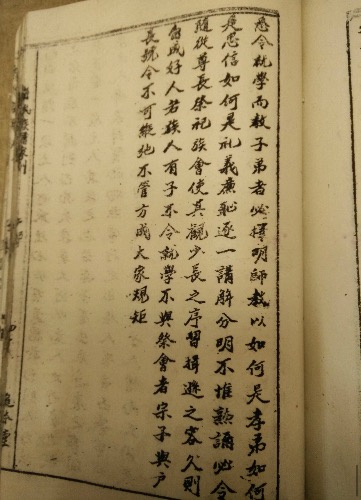 悉令就學而教子弟者必擇明師教以如何是孝弟如何
是忠信如何是礼義廉恥逐一講解分明不惟熟誦必令
隨從尊長祭祀族會使其觀少長之序習揖遜之容久則
自成好人若族人有子不令就學不與祭會者宗子與户
長號令不可縱弛不管方成大家規矩